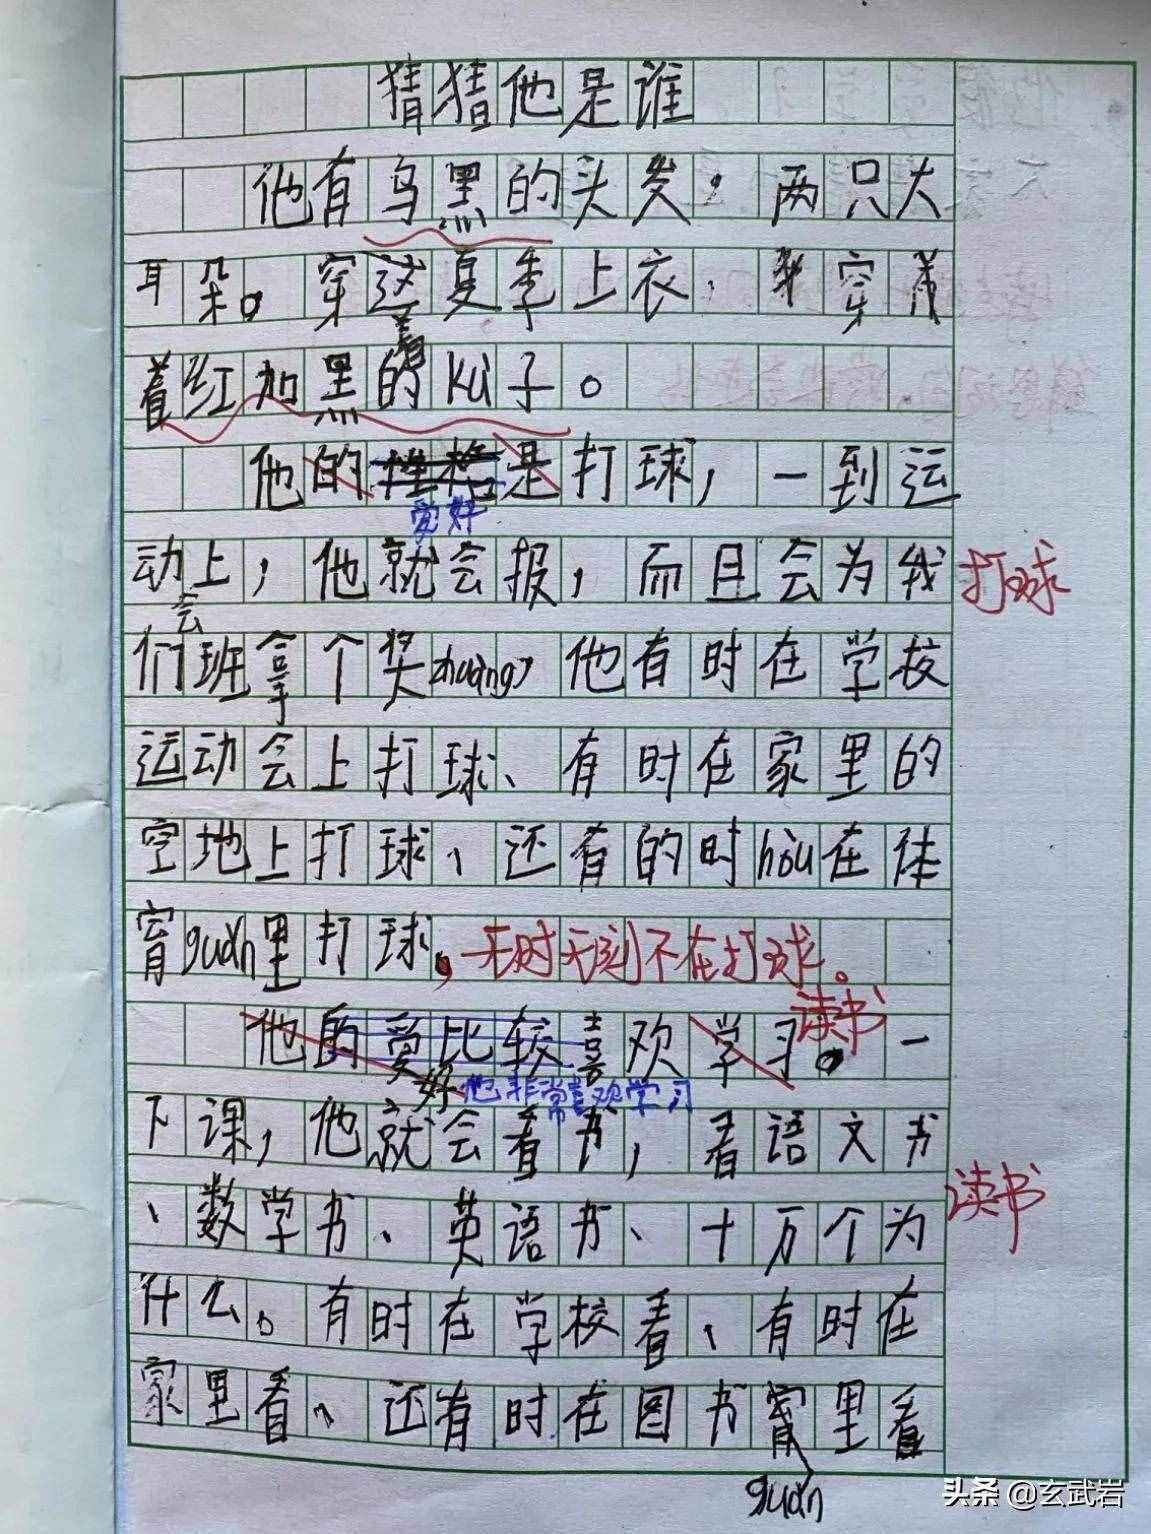 猜猜他是谁
他有乌黑的头发,两只大
耳朵。穿这夏季上衣,穿
着
着红加黑的kù子。
他的性格是打球,一到运
爱好
动上,他就会报,而且会为我
打球
会
们班拿个奖zhuàng,他有时在学校
运动会上打球、有时在家里的
空地上打球、还有的时hòu在体
育guǎn里打球,无时无刻不在打球。
读书
他的爱比较喜欢学习。一
好他非常喜欢学习
下课,他就会看书,看语文书
读书
、数学书、英语书、十万个为
什么。有时在学校看、有时在
家里看、还有时在图书里看
guǎn
头条 @玄武岩